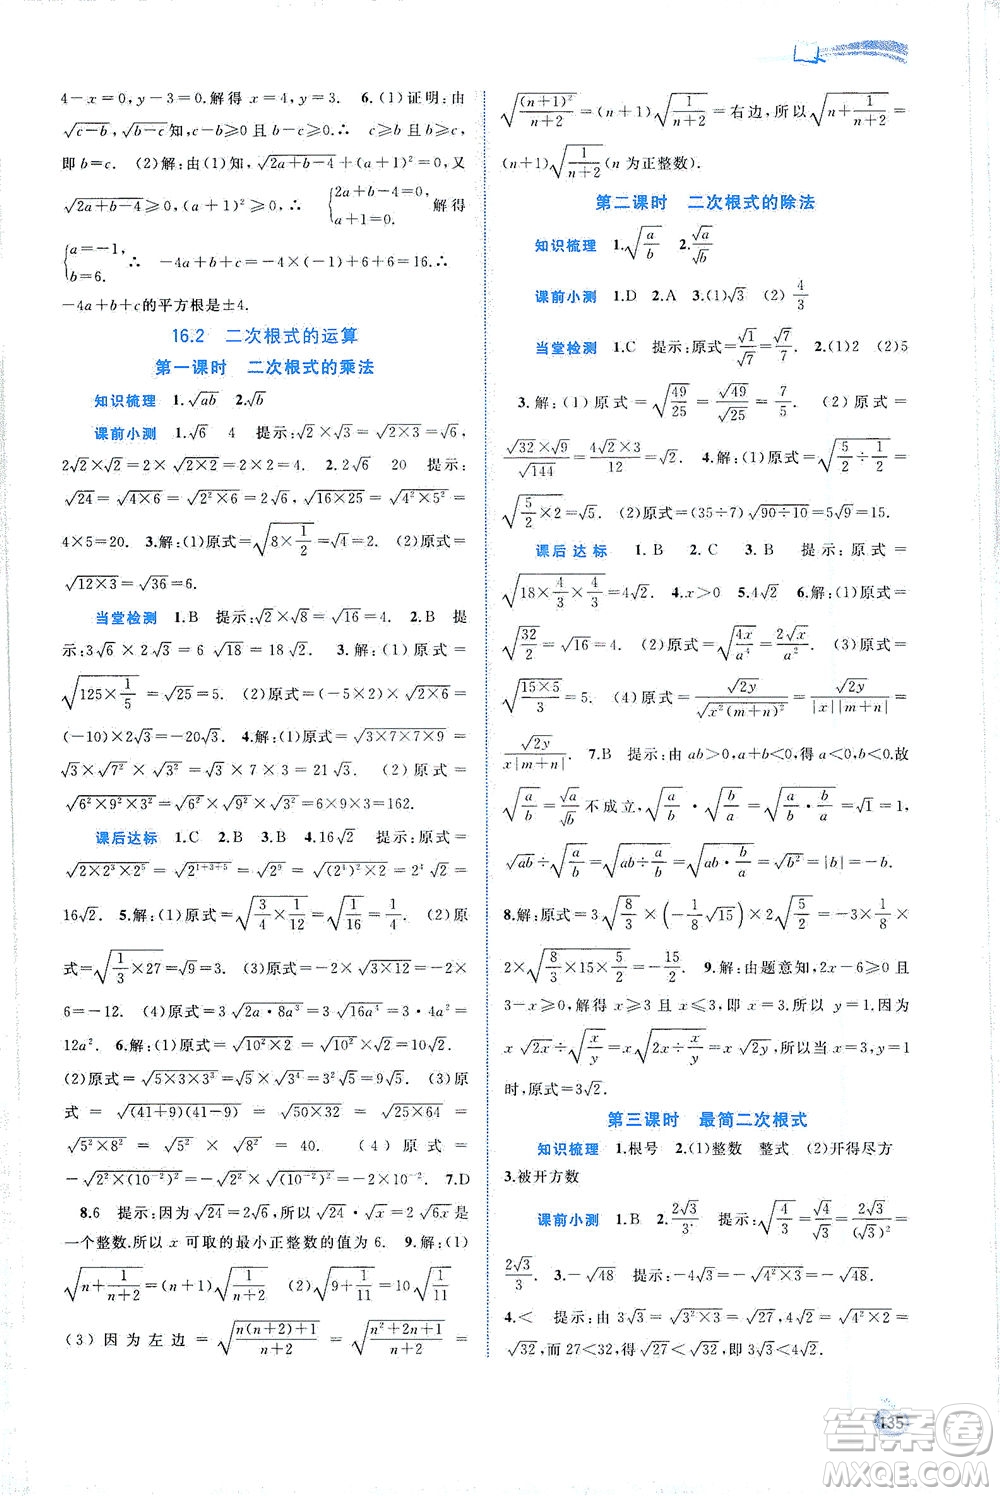 4－x＝0，y－3＝0.解得 x＝4，y＝3.　6.(1)证明：由
√(c－b)，√(b－c)知，c－b≥0 且 b－c≥0.∴　c≥b 且 b≥c，
即 b＝c.　(2)解：由(1)知，√(2a＋b－4)＋(a＋1)²＝0，又
√(2a＋b－4)≥0，(a＋1)²≥0.∴　{2a＋b－4＝0，a＋1＝0.　解得
{a＝－1，b＝6.　∴　－4a＋b＋c＝－4×(－1)＋6＋6＝16.∴
－4a＋b＋c的平方根是±4.
16.2　二次根式的运算
第一课时　二次根式的乘法
知识梳理　1.√(ab)　2.√b
课前小测　1.√6　4　提示：√2×√3＝√(2×3)＝√6，
2√2×√2＝2×√(2×2)＝2×2＝4.　2.2√6　20　提示：
√24＝√(4×6)＝√(2²×6)＝2√6，√(16×25)＝√(4²×5²)＝
4×5＝20.　3.解：(1)原式＝√(8×1/2)＝√4＝2.　(2)原式＝
√(12×3)＝√36＝6.
当堂检测　1.B　提示：√2×√8＝√(2×8)＝4.　2.B　提
示：3√6×2√3＝6 √18＝18√2.　3.解：(1)原式＝
√(125×1/5)＝√25＝5.　(2)原式＝(－5×2)×√(2×6)＝
(－10)×2√3＝－20√3.　4.解：(1)原式＝√(3×7×7×9)＝
√3×√7²×√9＝√3×7×3＝21√3.　(2)原式＝
√(6²×9²×3²)＝√6²×√9²×√3²＝6×9×3＝162.
课后达标　1.C　2.B　3.B　4.16√2　提示：原式＝
√(2×2³×2⁵)＝√(2¹⁺³⁺⁵)＝√2⁹＝√((2⁴)²×2)＝2⁴√2＝
16√2.　5.解：(1)原式＝√(3/4×1/12)＝√(1/16)＝1/4.　(2)原
式＝√(1/3×27)＝√9＝3.　(3)原式＝－2×√(3×12)＝－2×
6＝－12.　(4)原式＝3√(2a·8a³)＝3√(16a⁴)＝3×4a²＝
12a².　6.解：(1)原式＝√(10²×2)＝√10²×√2＝10√2.
(2)原式＝√(5×3×3³)＝√5×√3⁴＝9√5.　(3)原
式＝√((41＋9)(41－9))＝√(50×32)＝√(4×25×64)＝
√(5²×8²)＝√5²×√8²＝5×8＝40.　(4)原式＝
－√(2×(10⁻²)²)＝－√2×√((10⁻²)²)＝－√2×10⁻².　7.D
8.6　提示：因为√24＝2√6，所以√24·√x＝2√(6x)＝
一个整数.所以 x 可取的最小正整数的值为 6.　9.解：(1)
√(n＋1/(n＋2))＝(n＋1)√(1/(n＋2))　(2)√(9＋1/11)＝10√(1/11)
(3)因为左边＝√((n(n＋2)＋1)/(n＋2))＝√((n²＋2n＋1)/(n＋2))＝
√((n＋1)²/(n＋2))＝(n＋1)√(1/(n＋2))＝右边，所以√(n＋1/(n＋2))＝
(n＋1)√(1/(n＋2))(n 为正整数).
第二课时　二次根式的除法
知识梳理　1.√(a/b)　2.√a/√b
课前小测　1.D　2.A　3.(1)√3　(2)4/3
当堂检测　1.C　提示：原式＝√1/√7＝√(1/7).　2.(1)2　(2)5
3.解：(1)原式＝√(49/25)＝√49/√25＝7/5.　(2)原式＝
√32×√9/√144＝4√2×3/12＝√2.　4.解：(1)原式＝√(5/2÷1/2)＝
√(5/2×2)＝√5.　(2)原式＝(35÷7)√(90÷10)＝5√9＝15.
课后达标　1.B　2.C　3.B　提示：原式＝
√(18×4/3×4/3)＝4√2.　4.x＞0　5.4√2　6.解：(1)原式＝
√(32/2)＝√16＝4.　(2)原式＝√(4x/a⁴)＝2√x/a².　(3)原式＝
√(15×5/3)＝5.　(4)原式＝√(2y)/√(x²(m＋n)²)＝√(2y)/(|x||m＋n|)＝
√(2y)/(x|m＋n|).　7.B　提示：由 ab＞0，a＋b＜0，得 a＜0，b＜0，故
√(a/b)＝√a/√b不成立，√(a/b)·√(b/a)＝√(a/b×b/a)＝√1＝1，
√(ab)÷√(a/b)＝√(ab÷a/b)＝√(ab·b/a)＝√b²＝|b|＝－b.
8.解：原式＝3√(8/3)×(－1/8√15)×2√(5/2)＝－3×1/8×
2×√(8/3×15×5/2)＝－15/2.　9.解：由题意知，2x－6≥0 且
3－x≥0，解得 x≥3 且 x≤3，即 x＝3.所以 y＝1.因为
x√(2x)÷√(x/y)＝x√(2x÷x/y)＝x√(2y)，所以当 x＝3，y＝1
时，原式＝3√2.
第三课时　最简二次根式
知识梳理　1.根号　2.(1)整数　整式　(2)开得尽方
3.被开方数
课前小测　1.B　2.2√3/3.　提示：√(4/3)＝√4/√3＝2√3/(√3)²＝
2√3/3.　3.－√48　提示：－4√3＝－√(4²×3)＝－√48.
4.＜　提示：3√3＝√(3²×3)＝√27，4√2＝√(4²×2)＝
√32，而 27＜32，所以√27＜√32，即 3√3＜4√2.
135
答案圈
MXQE.COM